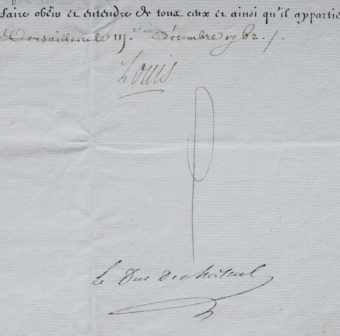 faire obéir et entendre de tous ceux et ainsi qu'il appartie
Versailles le 11j.e Décembre 1762 ./.
Louis
Le Duc De choiseul